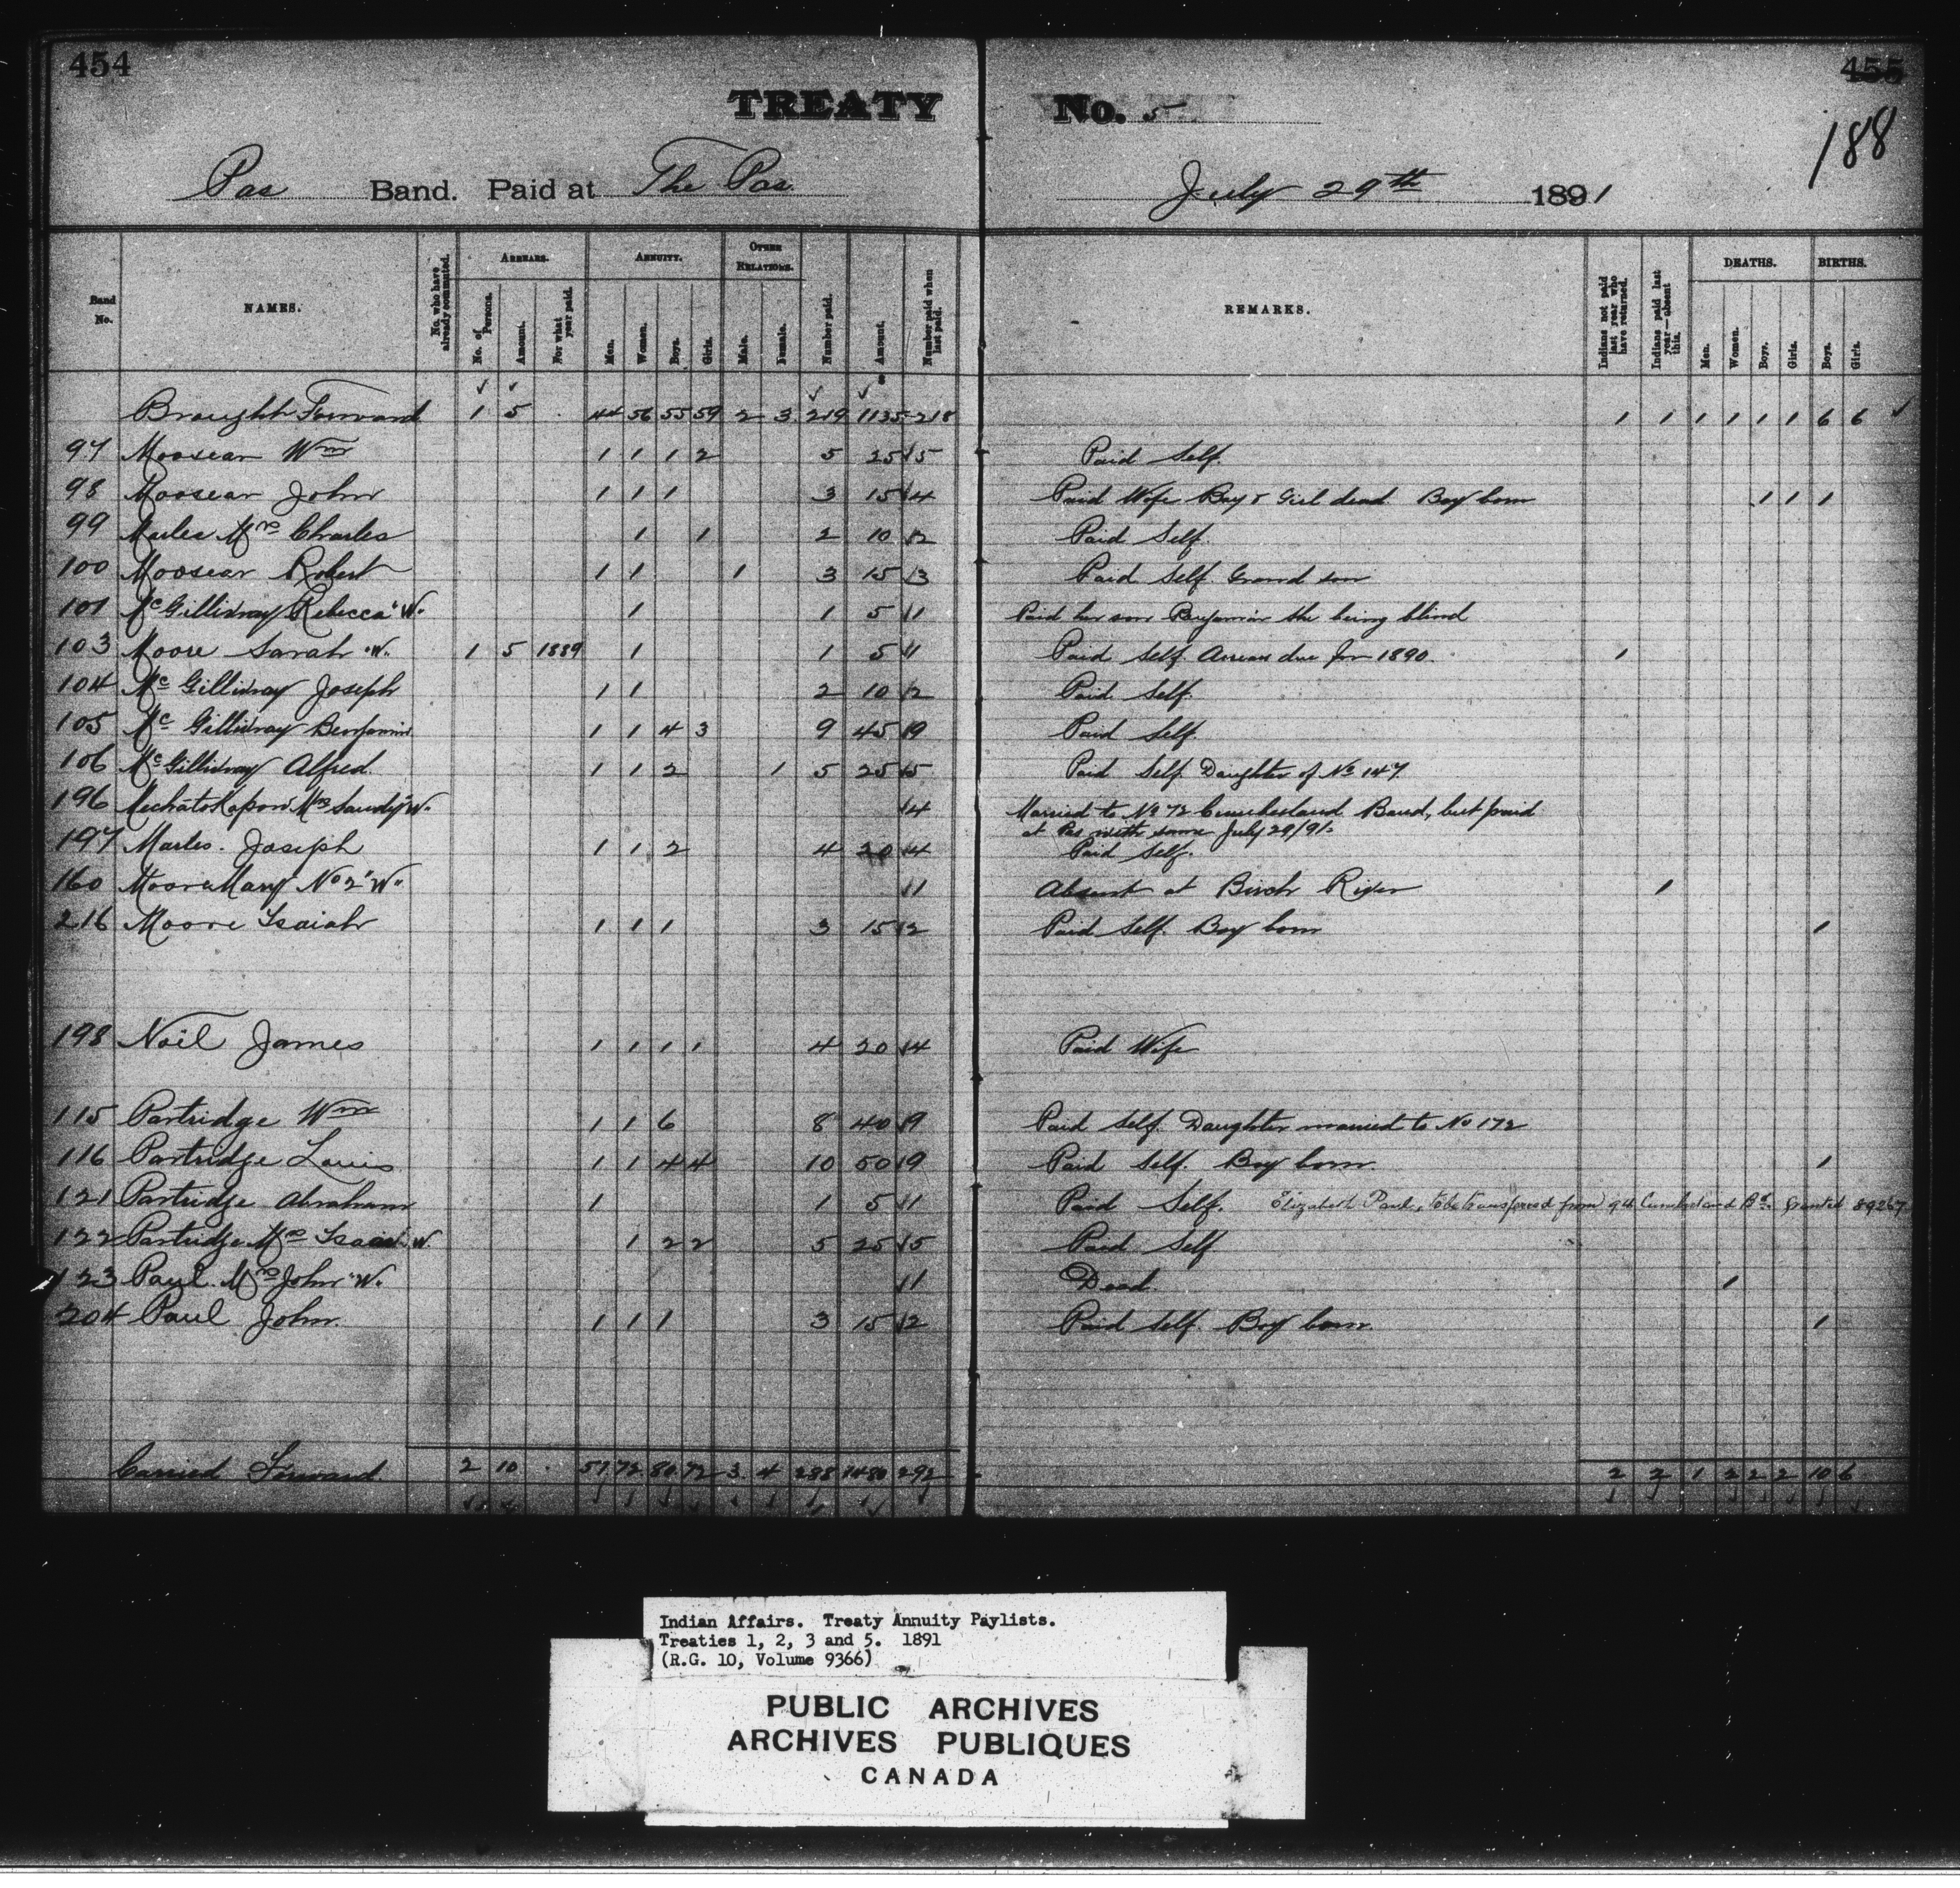 454
455
188
TREATY No. 5
Pas Band. Paid at The Pas July 29th 1891
Band No.
NAMES.
No. who have already commuted.
ARREARS.
No. of Persons.
Amount.
For what year paid.
ANNUITY.
Men.
Women.
Boys.
Girls.
OTHER RELATIONS.
Male.
Female.
Number paid.
Amount.
Number paid when last paid.
REMARKS.
Indians not paid last year who have returned.
Indians paid last year—absent this.
DEATHS.
Men.
Women.
Boys.
Girls.
BIRTHS.
Boys.
Girls.
Brought Forward 1 5 44 56 55 59 2 3 219 1135 218 1 1 1 1 1 1 6 6
97 Moosear Wm 1 1 1 2 5 25 5 Paid Self.
98 Moosear John 1 1 1 3 15 4 Paid Wife Boy & Girl dead Boy born 1 1 1
99 Marles Mrs Charles 1 1 2 10 2 Paid Self.
100 Moosear Robert 1 1 1 3 15 3 Paid Self Grand son
101 McGillivray Rebecca "W" 1 1 5 1 Paid her son Benjamin she being blind
103 Moore Sarah "W" 1 5 1889 1 1 5 1 Paid Self. Arrears due for 1890. 1
104 McGillivray Joseph 1 1 2 10 2 Paid Self.
105 McGillivray Benjamin 1 1 4 3 9 45 9 Paid Self.
106 McGillivray Alfred. 1 1 2 1 5 25 5 Paid Self. Daughter of No 147
196 Mechatokapow Mrs Sandy "W" 4 Married to No 72 Cumberland Band, but paid
at Pas with same July 29/91.
197 Marles. Joseph 1 1 2 4 20 4 Paid Self.
160 Moore Mary No 2 "W" 1 Absent at Birch River 1
216 Moore Isaiah 1 1 1 3 15 2 Paid Self. Boy born 1
198 Noil James 1 1 1 1 4 20 4 Paid Wife
115 Partridge Wm 1 1 6 8 40 9 Paid Self. Daughter married to No 172
116 Partridge Louis 1 1 4 4 10 50 9 Paid Self. Boy born. 1
121 Partridge Abraham 1 1 5 1 Paid Self. Elizabeth Paul, to be transferred from 94 Cumberland Bd. Granted 89267
122 Partridge Mrs Isaac "W" 1 2 2 5 25 5 Paid Self
123 Paul. Mrs John "W" 1 Dead. 1
204 Paul John. 1 1 1 3 15 2 Paid Self. Boy born. 1
Carried Forward 2 10 57 72 80 72 3 4 288 1480 292 2 2 1 2 2 2 10 6
Indian Affairs. Treaty Annuity Paylists.
Treaties 1, 2, 3 and 5. 1891
(R.G. 10, Volume 9366)
PUBLIC ARCHIVES
ARCHIVES PUBLIQUES
CANADA